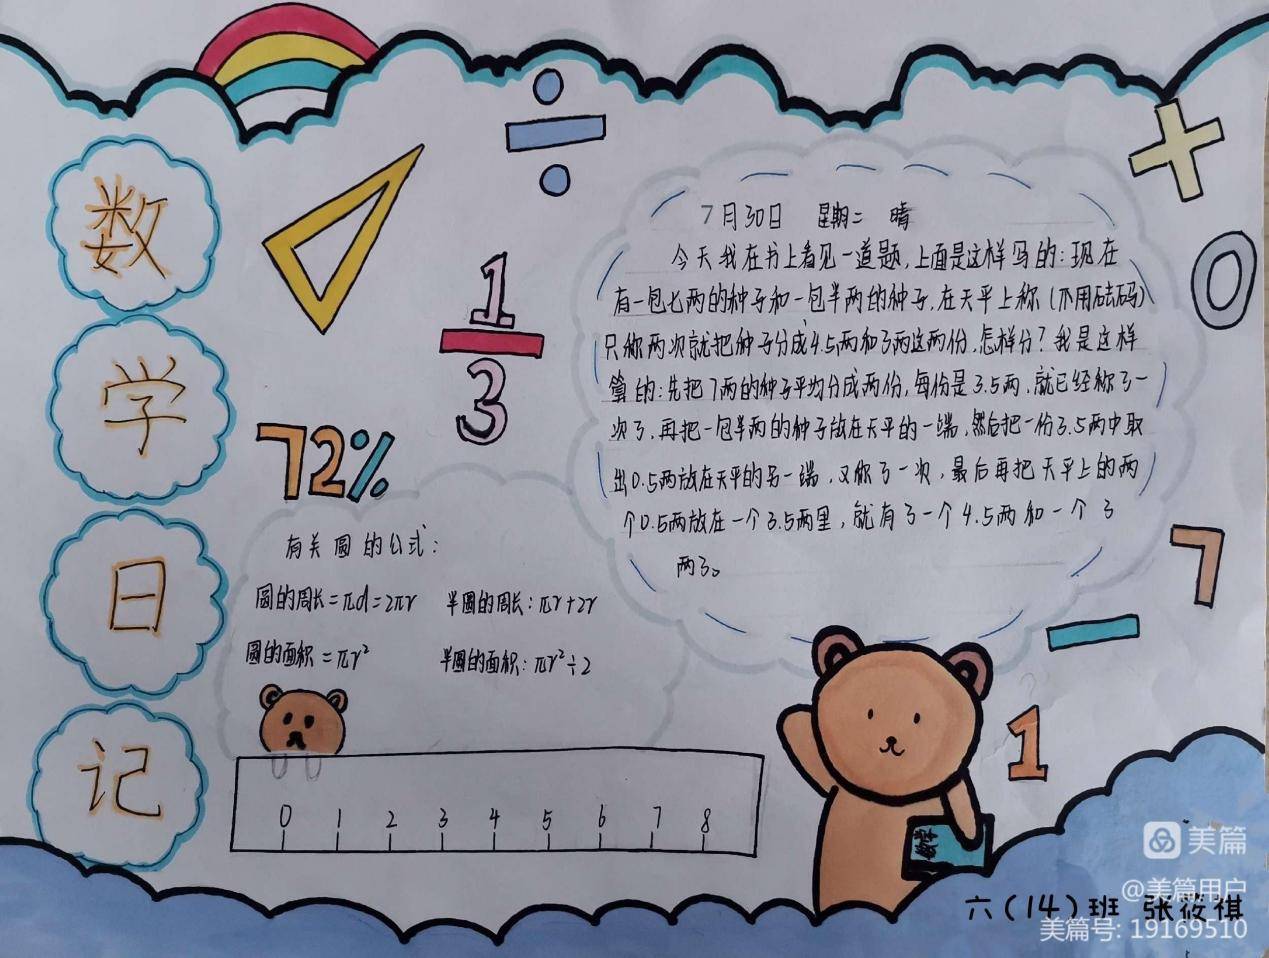 数
学
日
记
1
3
72%
7月30日 星期二 晴
今天我在书上看见一道题,上面是这样写的:现在
有一包七两的种子和一包半两的种子,在天平上称(不用砝码)
只称两次就把种子分成4.5两和3两这两份,怎样分?我是这样
算的:先把7两的种子平均分成两份,每份是3.5两,就已经称了一
次了,再把一包半两的种子放在天平的一端,然后把一份3.5两中取
出0.5两放在天平的另一端,又称了一次,最后再把天平上的两
个0.5两放在一个3.5两里,就有了一个4.5两和一个3
两了。
有关圆的公式:
圆的周长=πd=2πr 半圆的周长:πr+2r
圆的面积=πr² 半圆的面积:πr²÷2
0 1 2 3 4 5 6 7 8
÷
+
0
7
1
六(14)班 张筱祺
美篇
@美篇用户
美篇号: 19169510